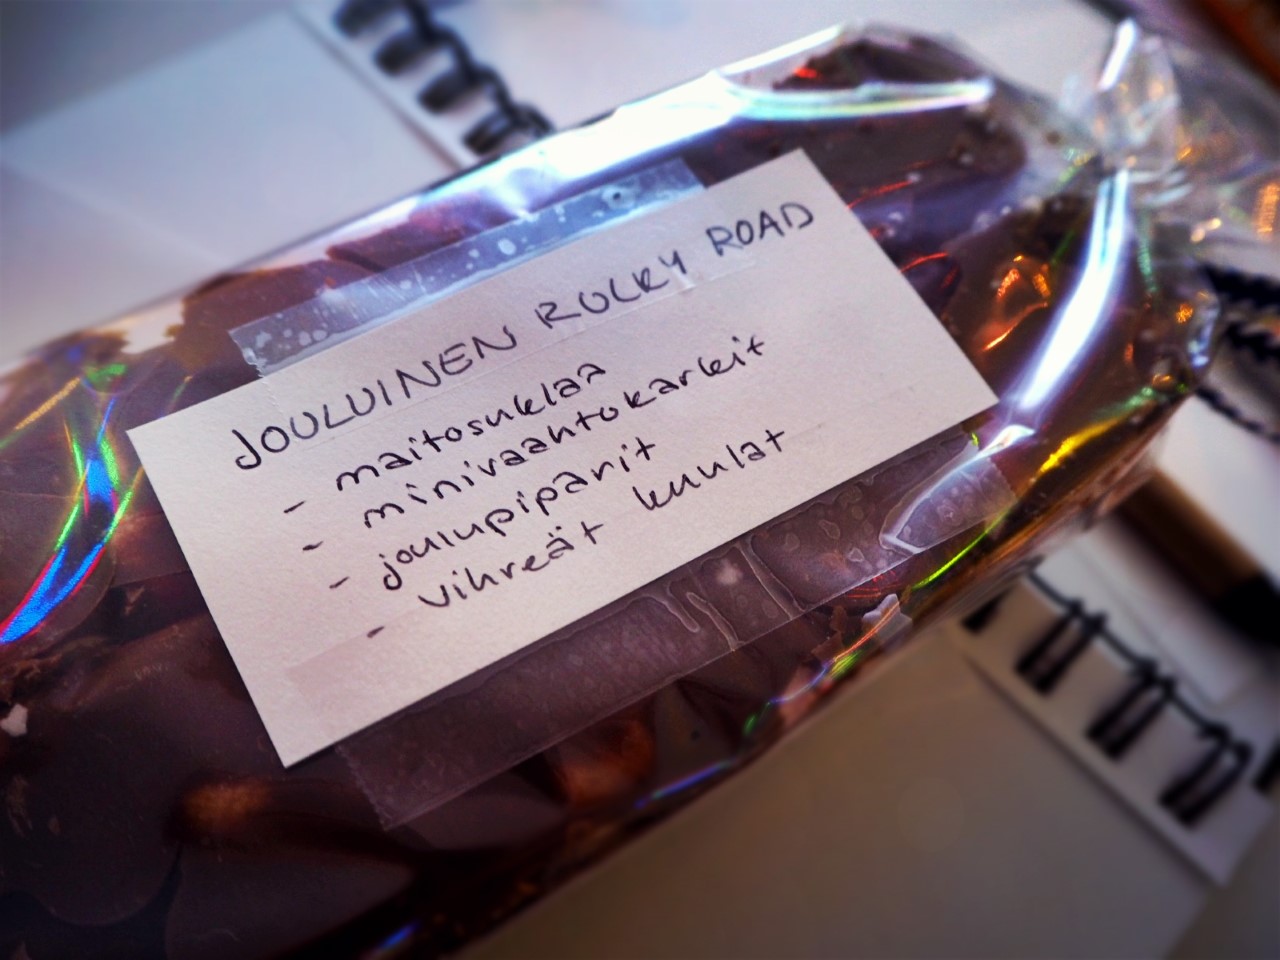 JOULUINEN ROCKY ROAD
- maitosuklaa
- minivaahtokarkit
- joulupiparit
- vihreät kuulat